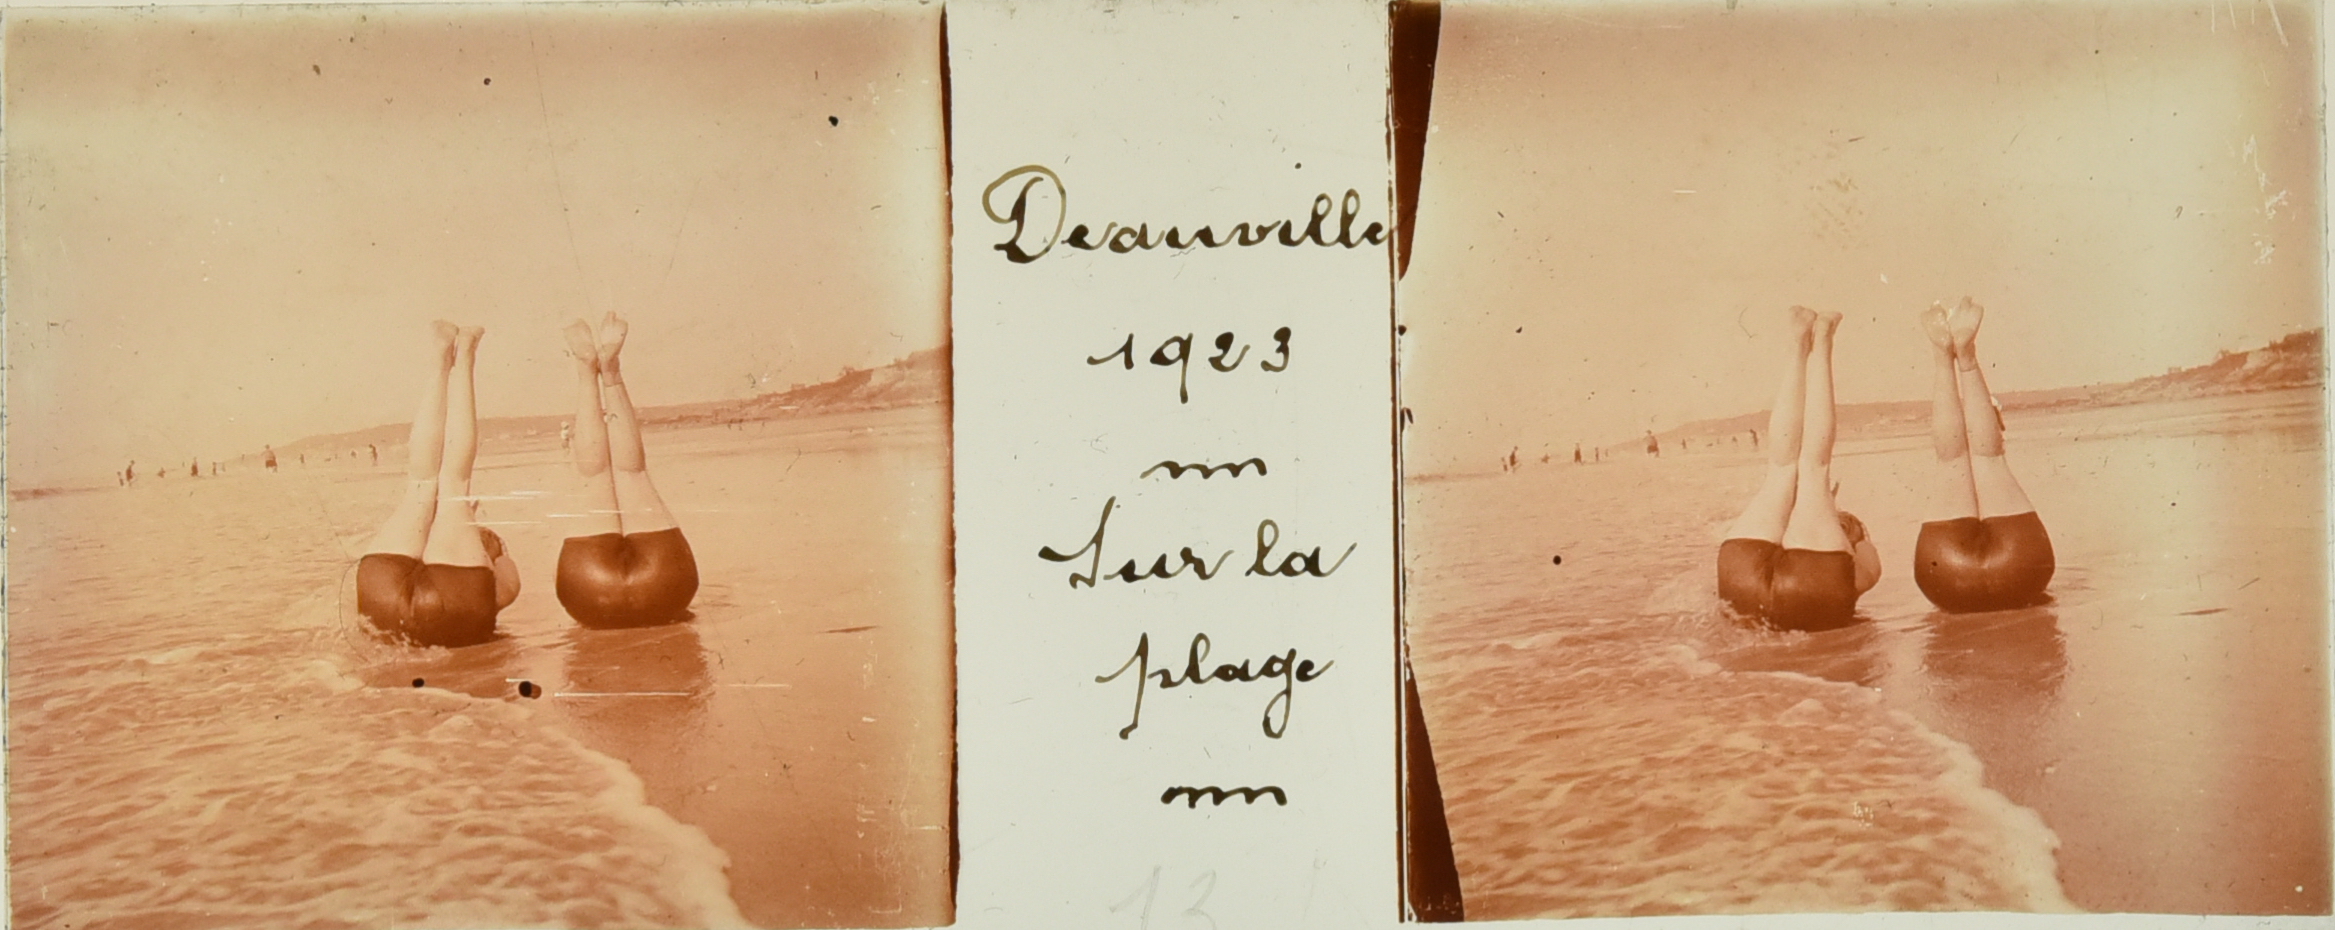 Deauville
1923
Sur la
plage
13